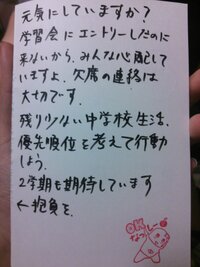 元気にしていますか?
学習会にエントリーしたのに
来ないから、みんな心配して
いますよ。欠席の連絡は
大切です。
残り少ない中学校生活、
優先順位を考えて行動
しよう。
2学期も期待しています
←抱負を、
なっしー